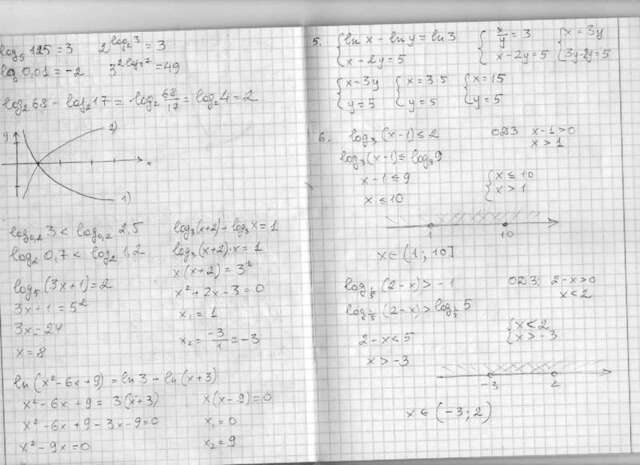 log₅ 125 = 3   2^(log₂ 3) = 3
lg 0,01 = -2   3^(2log₃ 7) = 49
log₂ 68 - log₂ 17 = log₂ 68/17 = log₂ 4 = 2
y
2)
x
1)
log₀,₂ 3 < log₀,₂ 2,5
log₂ 0,7 < log₂ 1,2
log₅ (3x+1) = 2
3x - 1 = 5²
3x = 24
x = 8
log₃ (x+2) + log₃ x = 1
log₃ (x+2)·x = 1
x (x+2) = 3¹
x² + 2x - 3 = 0
x₁ = 1
x₂ = -3/1 = -3
ln (x² - 6x + 9) = ln 3 + ln (x+3)
x² - 6x + 9 = 3(x+3)
x² - 6x + 9 - 3x - 9 = 0
x² - 9x = 0
x (x - 9) = 0
x₁ = 0
x₂ = 9
5. { ln x - ln y = ln 3   { x/y = 3   { x = 3y
{ x - 2y = 5   { x - 2y = 5   { 3y - 2y = 5
{ x - 3y   { x = 3·5   { x = 15
{ y = 5   { y = 5   { y = 5
6. log₃ (x-1) ≤ 2   ОДЗ x - 1 > 0
x > 1
log₃ (x-1) ≤ log₃ 9
x - 1 ≤ 9   { x ≤ 10
x ≤ 10   { x > 1
1   10
x ∈ (1; 10]
log₁/₅ (2-x) > -1   ОДЗ: 2 - x > 0
x < 2
log₁/₅ (2-x) > log₁/₅ 5
2 - x < 5   { x < 2
x > -3   { x > -3
-3   2
x ∈ (-3; 2)